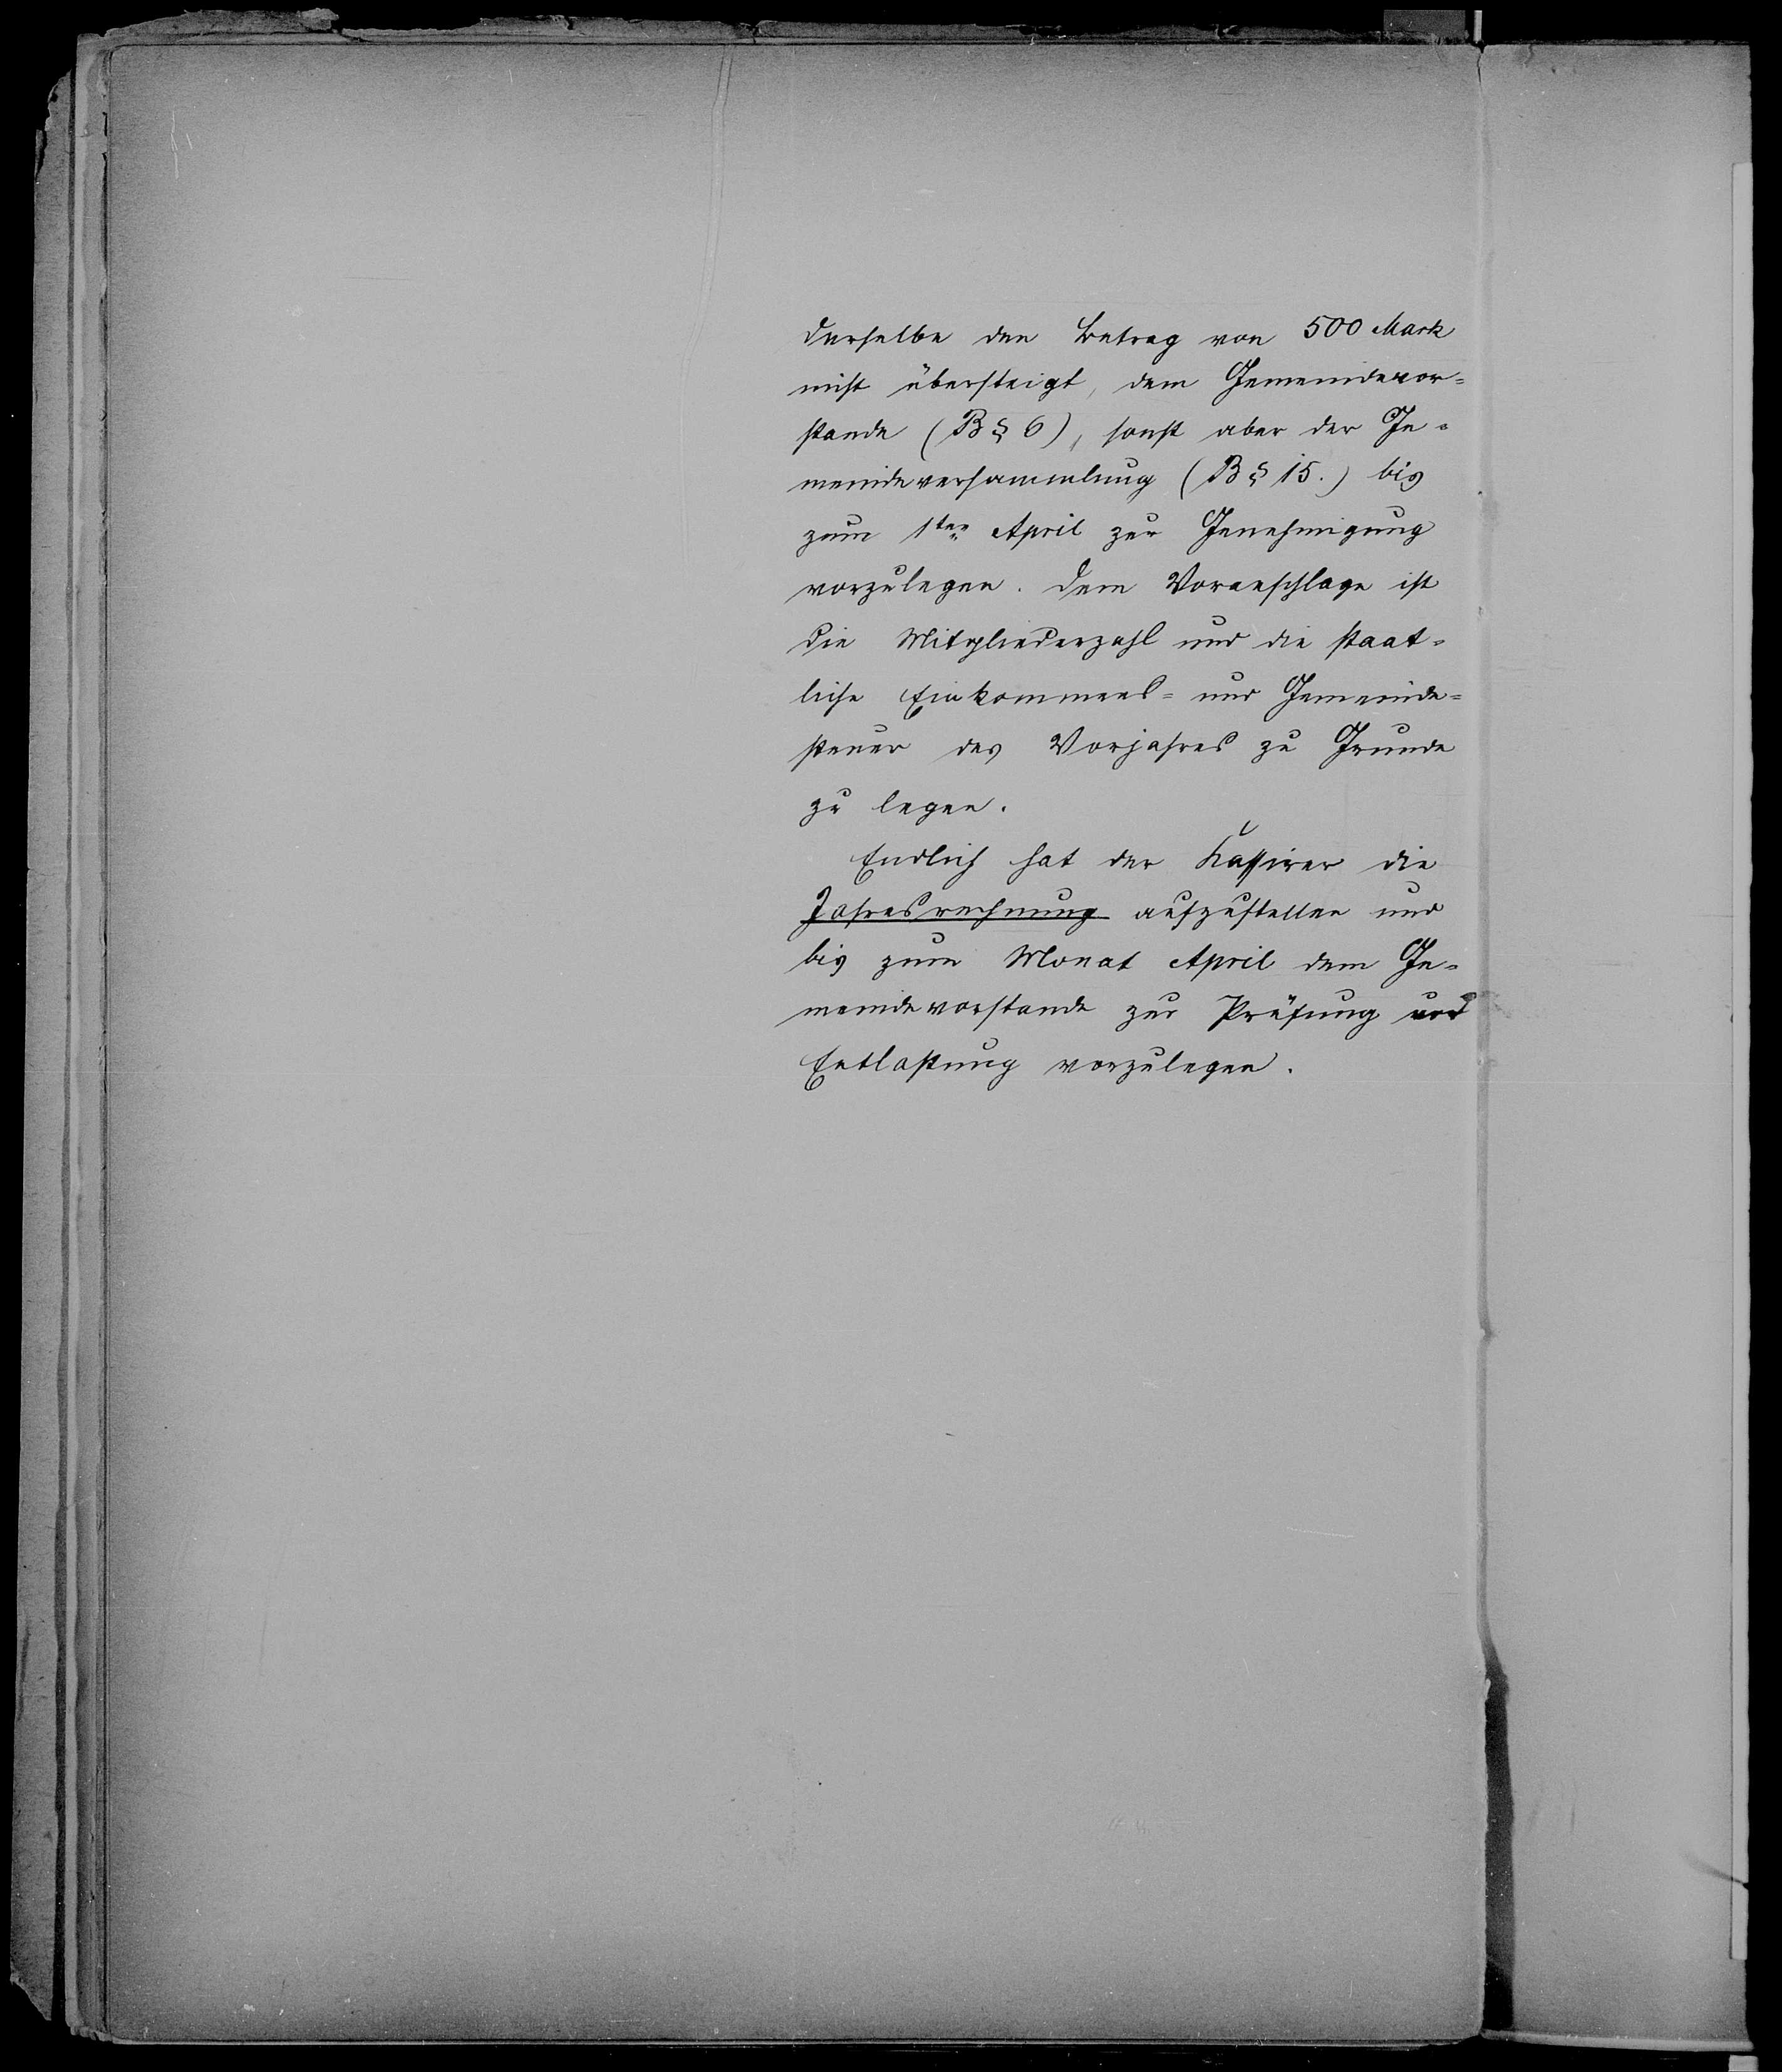 derselbe den Betrag von 500 Mark
nicht übersteigt, dem Gemeindevor=
stande (B § 6), sonst aber der Ge=
meindeversammlung (B § 15.) bis
zum 1ten April zur Genehmigung
vorzulegen. Dem Voranschlage ist
die Mitgliederzahl und die staat=
liche Einkommens= und Gemeinde=
steuer des Vorjahres zu Grunde
zu legen.
Endlich hat der Kassirer die
Jahresrechnung aufzustellen und
bis zum Monat April dem Ge=
meindevorstande zur Prüfung und
Entlastung vorzulegen.